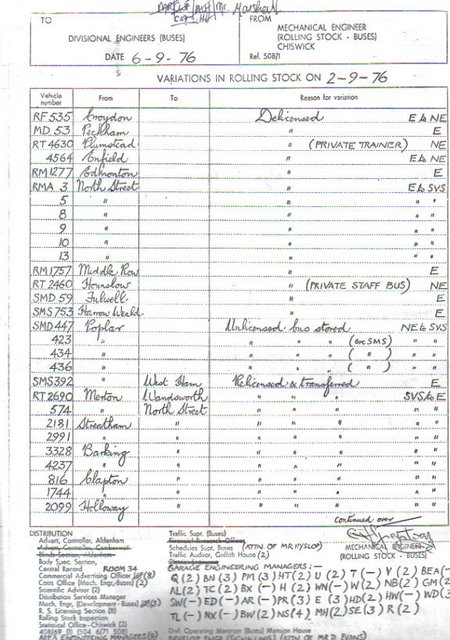 Mr. Marshall
TO
FROM
DIVISIONAL ENGINEERS (BUSES)
MECHANICAL ENGINEER
(ROLLING STOCK - BUSES)
CHISWICK
DATE 6-9-76
Ref. 508/1
VARIATIONS IN ROLLING STOCK ON 2-9-76
Vehicle number From To Reason for variation
RF 535 Croydon Delicensed E to NE
MD 53 Peckham " E
RT 4630 Plumstead " (PRIVATE TRAINER) NE
4564 Enfield " E to NE
RM 1277 Edmonton " E
RMA 3 North Street " E to SVS
5 " " " "
8 " " " "
9 " " " "
10 " " " "
13 " " " "
RM 1757 Middle Row " E
RT 2460 Hounslow " (PRIVATE STAFF BUS) NE
SMD 59 Fulwell " E
SMS 753 Harrow Weald " E
SMD 447 Poplar Unlicensed bus stored NE to SVS
423 " " " " (ex SMS) " "
434 " " " " ( " ) " "
436 " " " " ( " ) " "
SMS 392 " West Ham Relicensed & transferred E
RT 2690 Merton Wandsworth " " " SVS to E
574 " North Street " " " " "
2181 Streatham " " " " " "
2991 " " " " " " "
3328 Barking " " " " " "
4237 " " " " " " "
816 Clapton " " " " " "
1744 " " " " " " "
2099 Holloway " " " " " "
continued over
DISTRIBUTION
Advert. Controller, Aldenham
Advert. Controller, Camberwell
Body Spec. Section,
Central Record ROOM 34
Commercial Advertising Officer (8)
Costs Office (Mech. Engr. Buses) (2)
Scientific Adviser (2)
Distribution Services Manager
Mech. Engr. (Development - Buses) (3)
R. S. Licensing Section (8)
Rolling Stock Inspection
Statistical Office - Chiswick (2)
Traffic Supt. (Buses)
Schedules Supt. Buses (ATTN OF MR
Traffic Auditor, Griffith House (2)
MECHANICAL ENGINEER
(ROLLING STOCK - BUSES)
GARAGE ENGINEERING MANAGERS :-
Q (2) BN (3) PM (3) HT (2) U (2) T (-) V (2) BEA (-
AL (2) TC (2) BX (-) H (2) WN (-) W (2) NB (2) GM (2
SW (-) ED (-) AR (-) PR (3) E (3) HD (2) HW (-) WD (3
TL (-) NX (-) BW (2) NS (4) MH (2) SE (3) R (2)